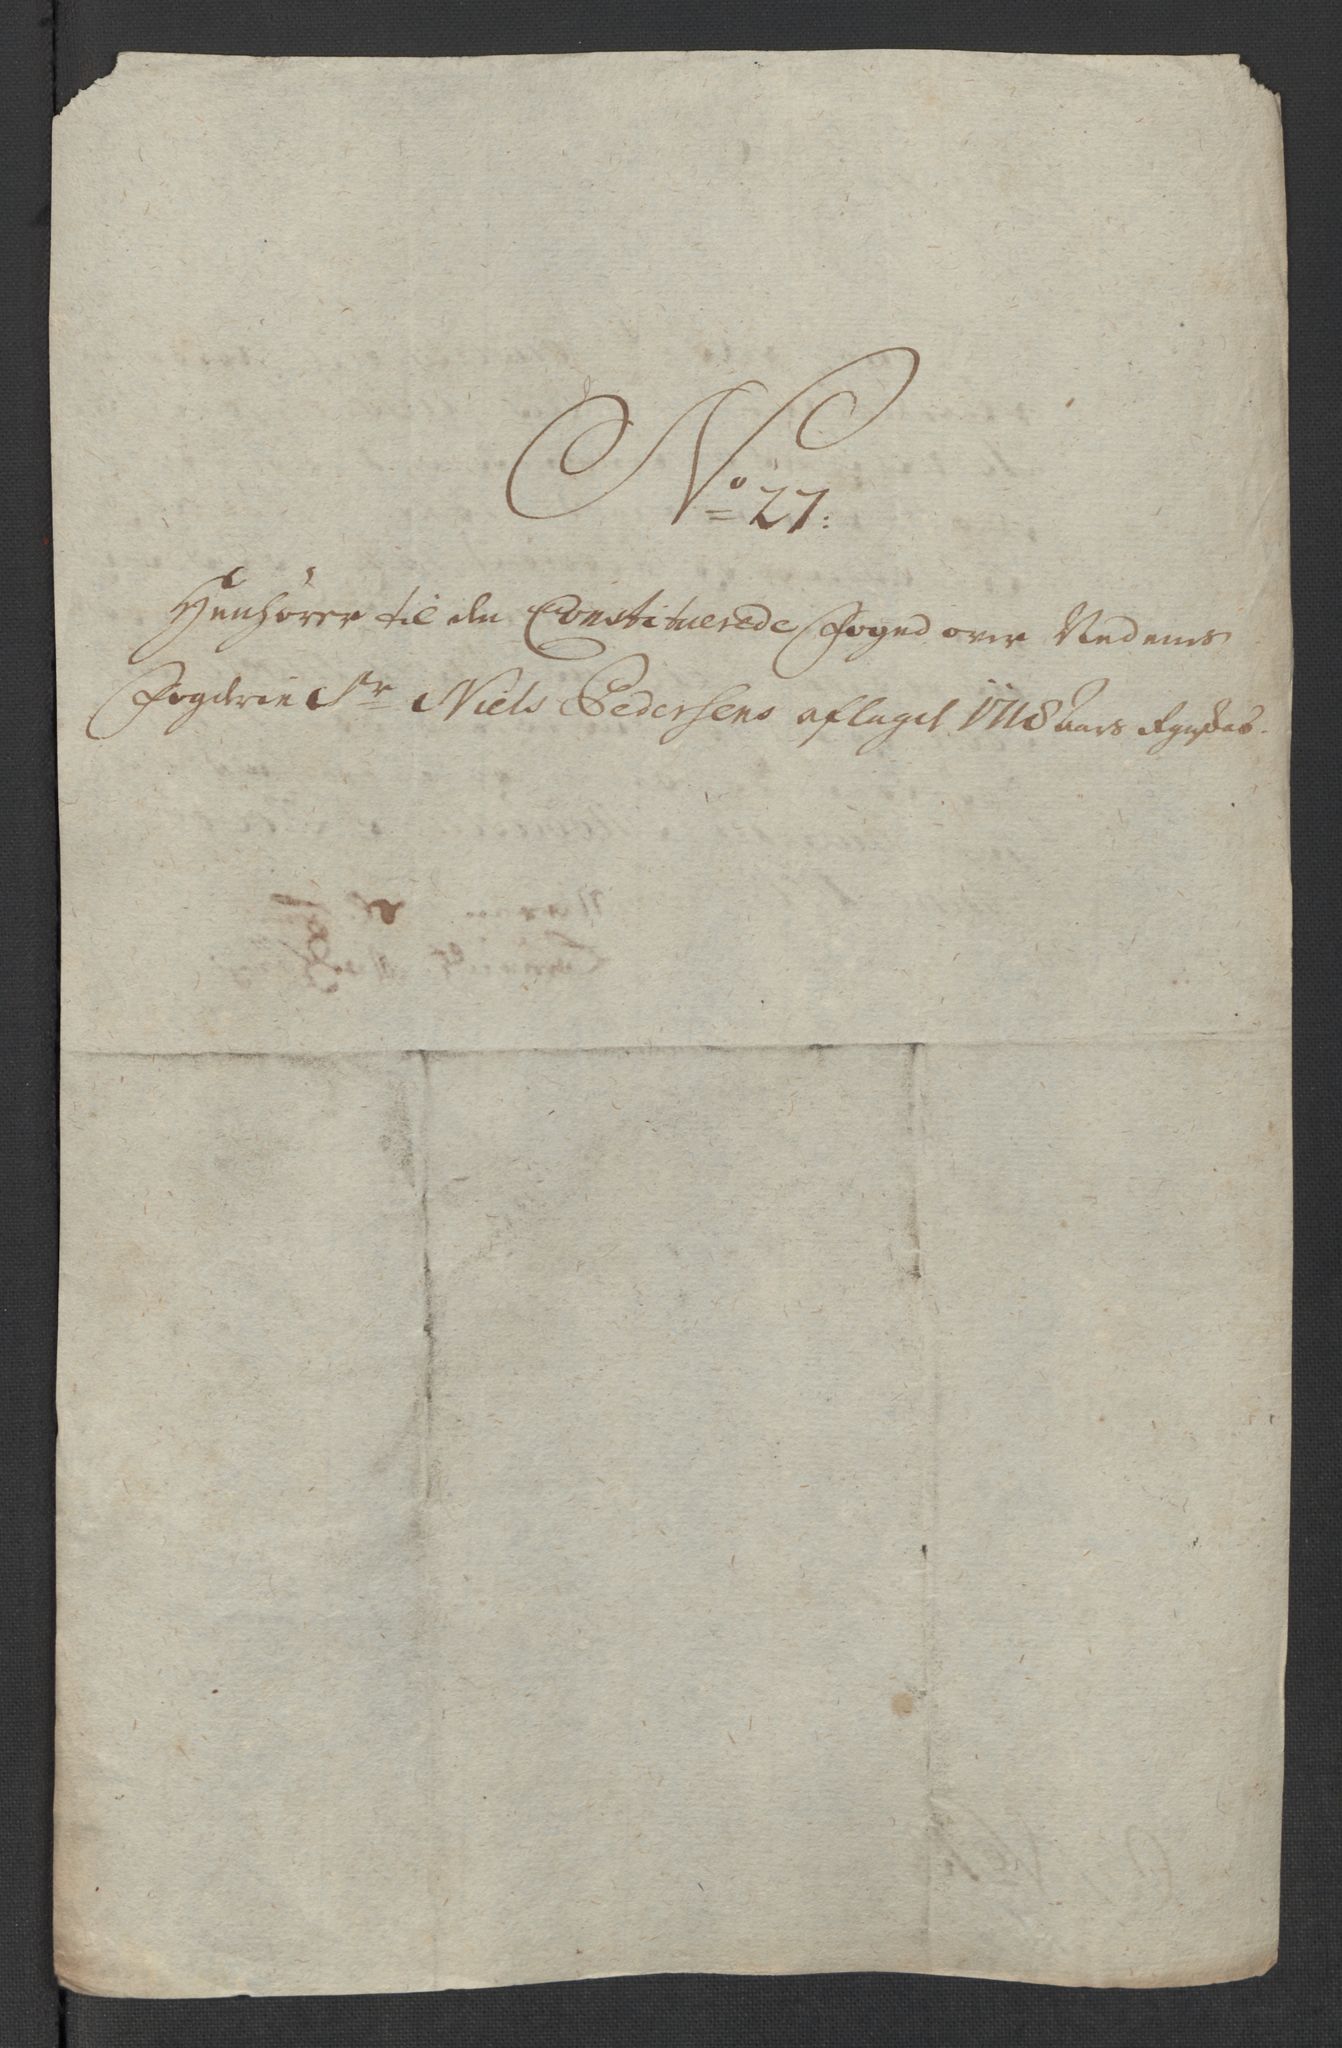 No 27:
Henhörer til den Constituerede Foged over Nedenes
Fogderie Sr Niels Pedersens aflagde 1718 Aars Regnskab.